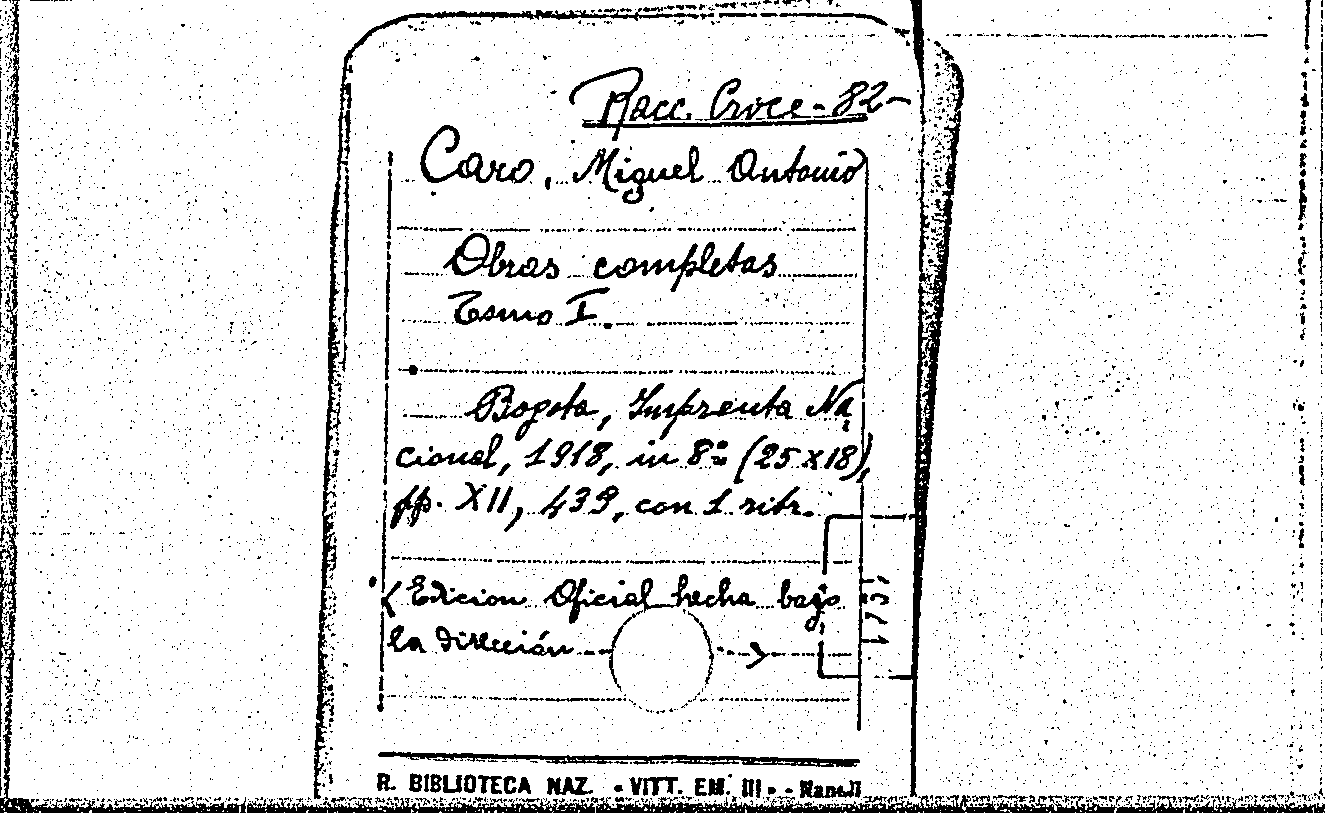 Racc. Croce - 82 -
Caro, Miguel Antonio
Obras completas
Tomo I.
Bogota, Imprenta Na
cional, 1918, in 8º (25 x 18),
pp. XII, 439, con 1 ritr.
(Edicion Oficial hecha bajo
la dirección -- >
R. BIBLIOTECA NAZ. - VITT. EM. III - - Napoli